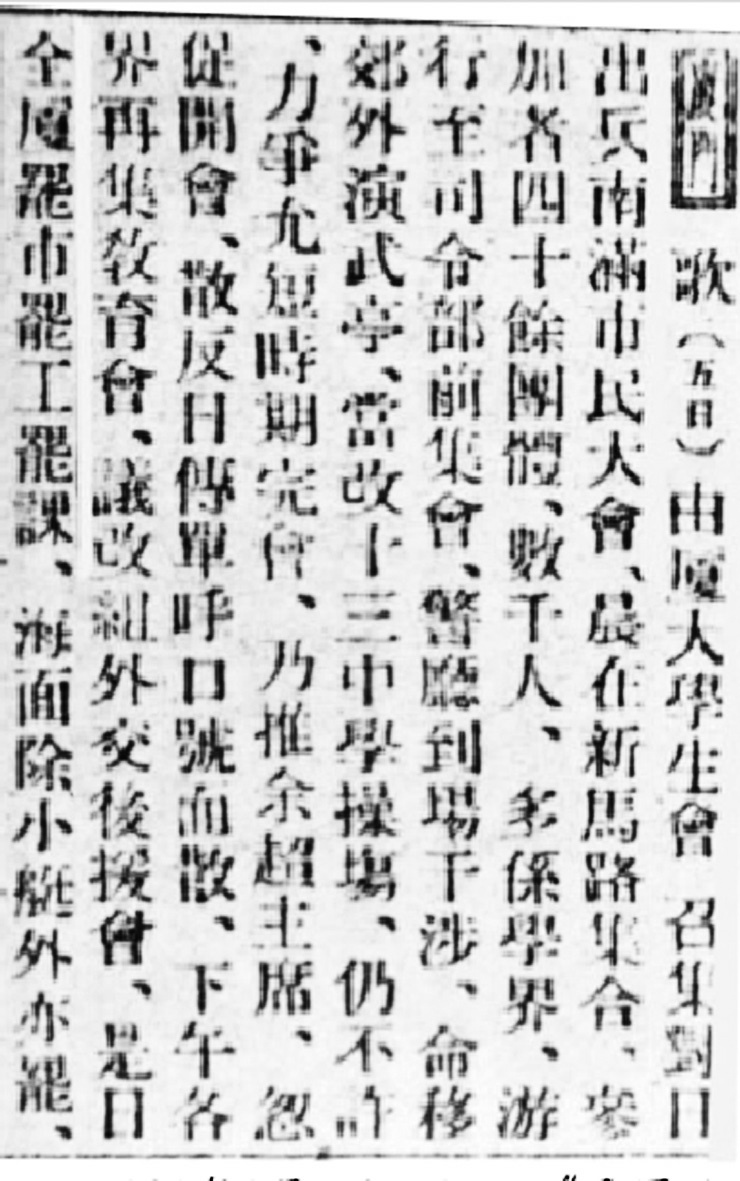 廈門 歌(五日)由廈大學生會 召集對日
出兵南滿市民大會、晨在新馬路集合、參
加者四十餘團體、數千人、多係學界、游
行至司令部前集會、警廳到場干涉、命移
郊外演武亭、當改十三中學操塲、仍不許
、力爭允短時期完會、乃推余超主席、忽
促開會、散反日傳單呼口號而散、下午各
界再集敎育會、議改組外交後援會、是日
全廈罷市罷工罷課、海面除小艇外亦罷、